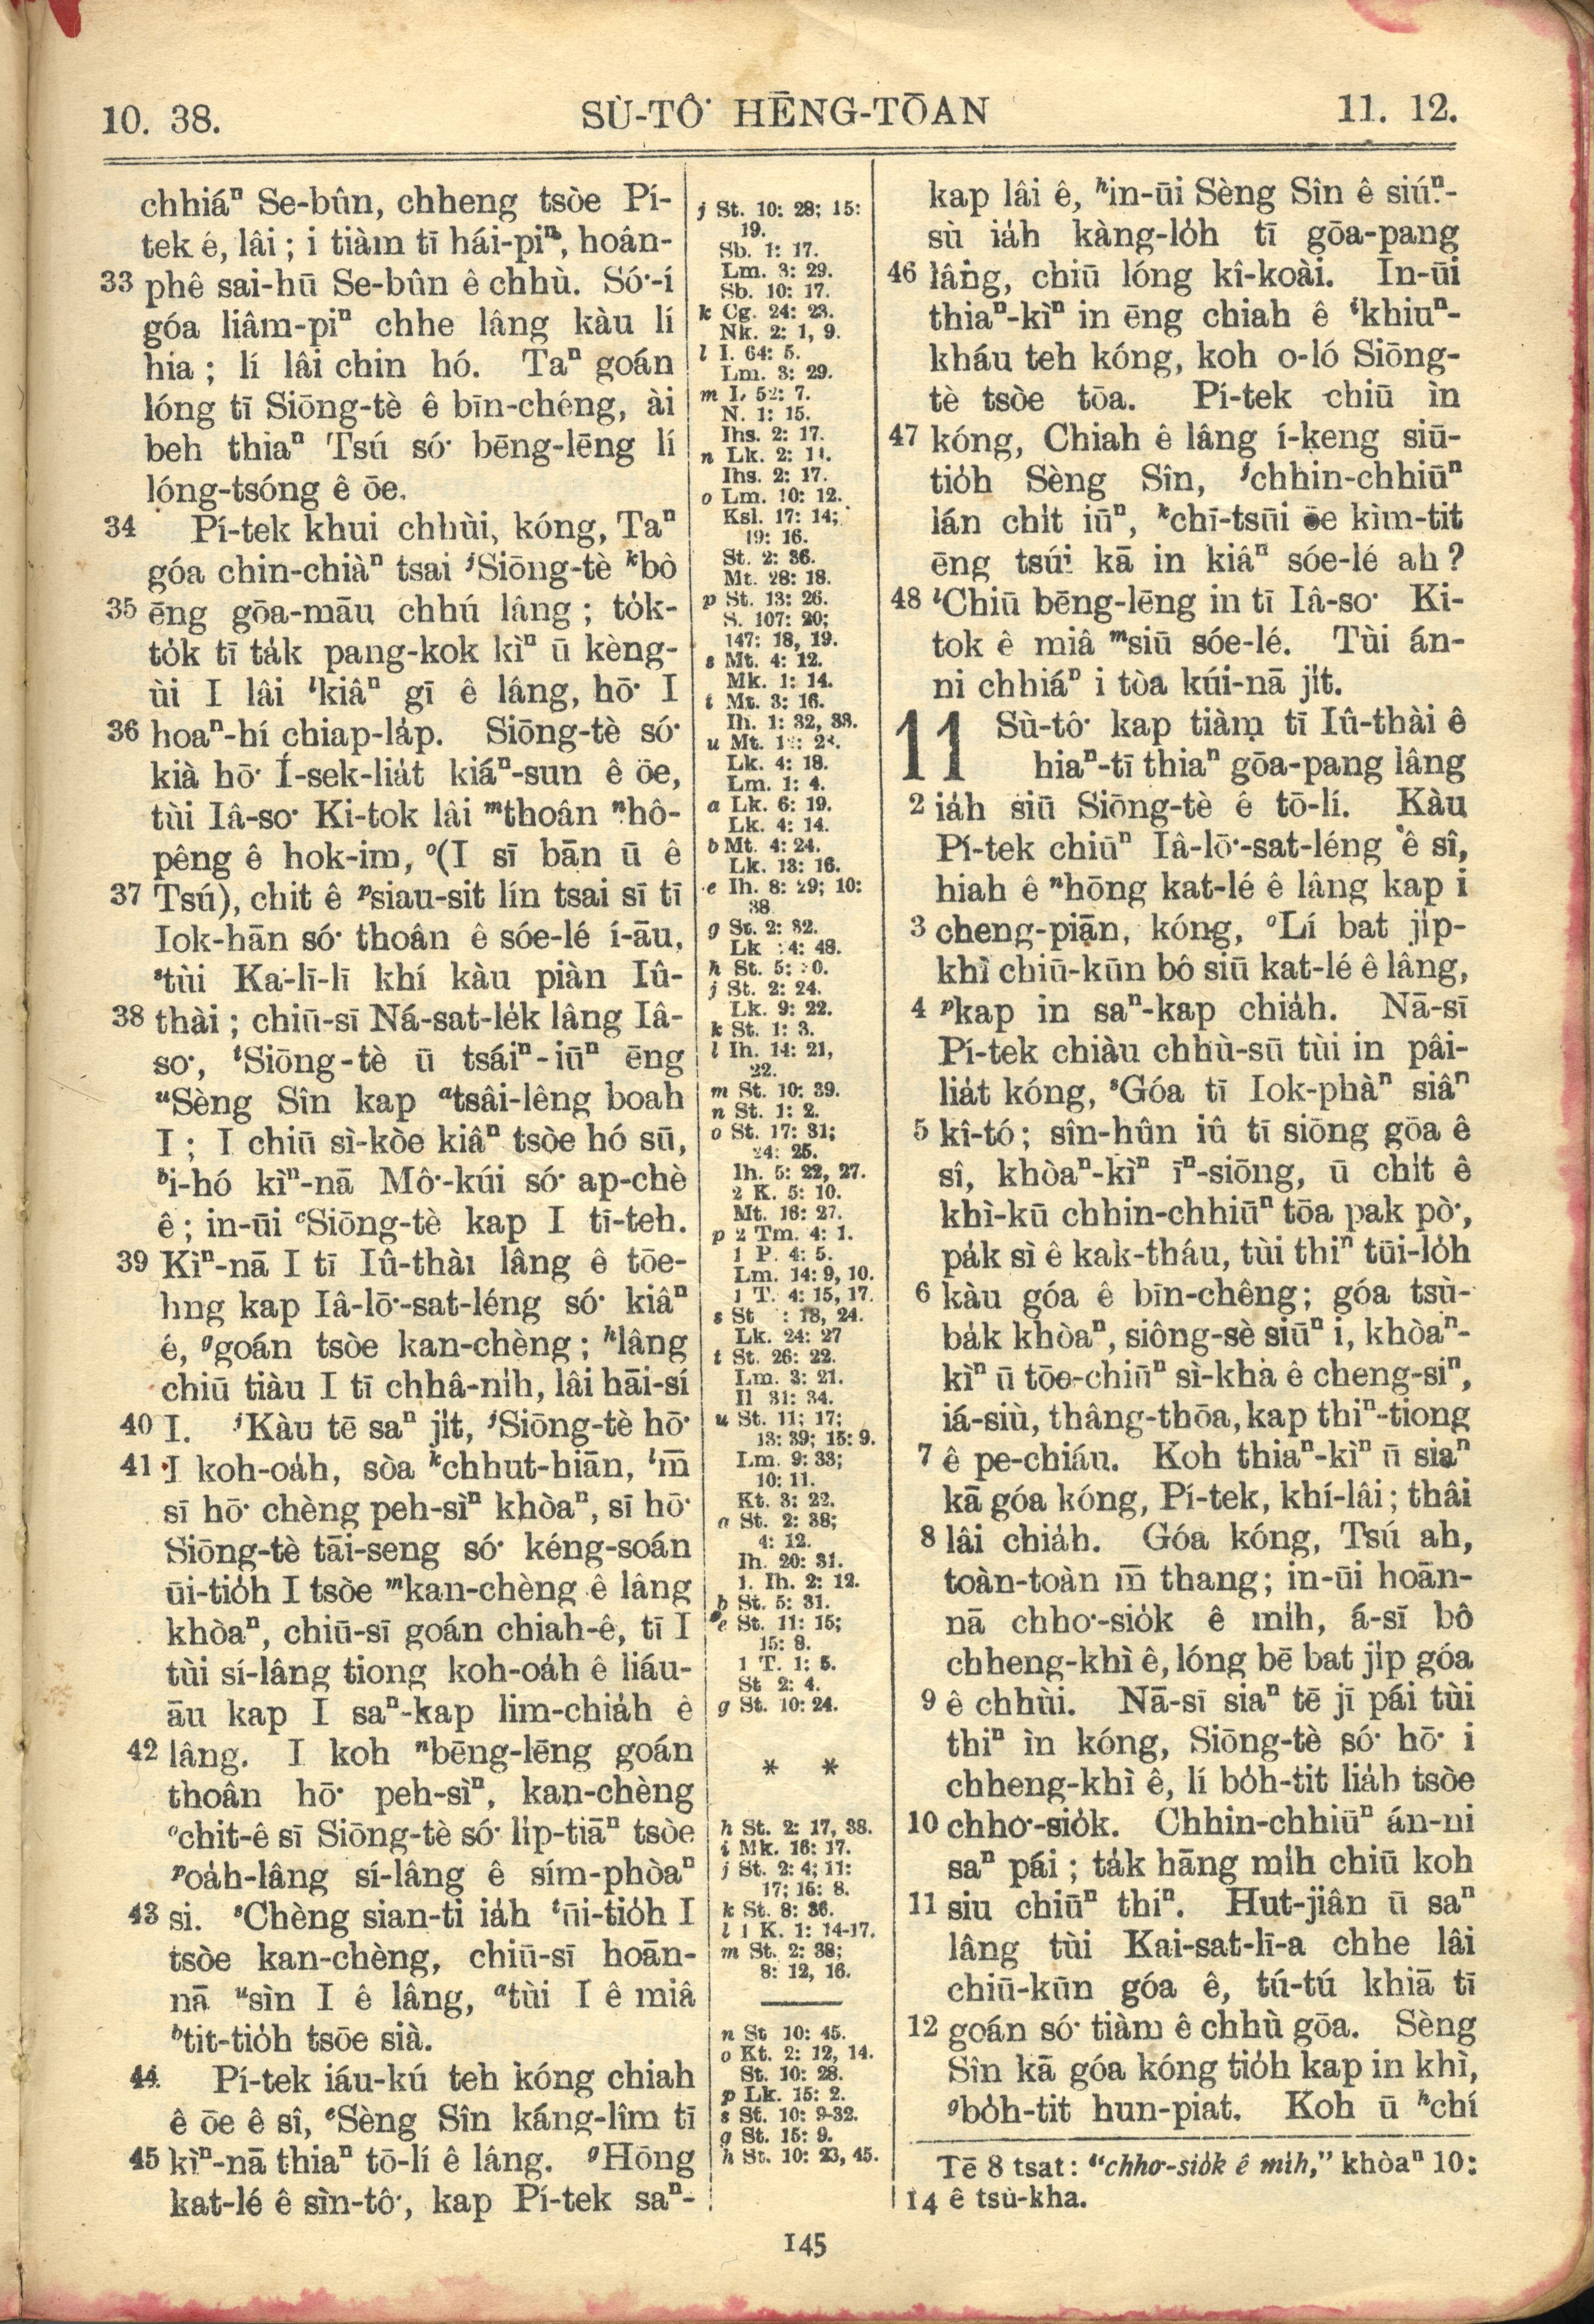 10. 38.
SÙ-TÔ͘ HĒNG-TŌAN
11. 12.
chhiáⁿ Se-bûn, chheng tsòe Pí-
tek ê, lâi ; i tiàm tī hái-piⁿ, hoân-
33 phê sai-hū Se-bûn ê chhù. Só͘-í
góa liâm-piⁿ chhe lâng kàu lí
hia ; lí lâi chin hó. Taⁿ goán
lóng tī Siōng-tè ê bīn-chéng, ài
beh thiaⁿ Tsú só͘ bēng-lēng lí
lóng-tsóng ê ōe.
34 Pí-tek khui chhùi, kóng, Taⁿ
góa chin-chiàⁿ tsai ʲSiōng-tè ᵏbô
35 ēng gōa-māu chhú lâng ; to̍k-
to̍k tī ta̍k pang-kok kìⁿ ū kèng-
ùi I lâi ˡkiâⁿ gī ê lâng, hō͘ I
36 hoaⁿ-hí chiap-la̍p. Siōng-tè só͘
kià hō͘ Í-sek-lia̍t kiáⁿ-sun ê ōe,
tùi Iâ-so͘ Ki-tok lâi ᵐthoân ⁿhô-
pêng ê hok-im, ᵒ(I sī bān ū ê
37 Tsú), chit ê ᵖsiau-sit lín tsai sī tī
Iok-hān só͘ thoân ê sóe-lé í-āu,
ˢtùi Ka-lī-lī khí kàu piàn Iû-
38 thài ; chiū-sī Ná-sat-le̍k lâng Iâ-
so͘, ᵗSiōng-tè ū tsáiⁿ-iūⁿ ēng
ᵘSèng Sîn kap ᵃtsâi-lêng boah
I ; I chiū sì-kòe kiâⁿ tsòe hó sū,
ᵇi-hó kìⁿ-nā Mô͘-kúi só͘ ap-chè
ê ; in-ūi ᵉSiōng-tè kap I tī-teh.
39 Kìⁿ-nā I tī Iû-thài lâng ê tōe-
hng kap Iâ-lō͘-sat-léng só͘ kiâⁿ
ê, ᵍgoán tsòe kan-chèng ; ʰlâng
chiū tiàu I tī chhâ-ni̍h, lâi hāi-sí
40 I. ʲKàu tē saⁿ ji̍t, ʲSiōng-tè hō͘
41 I koh-oa̍h, sòa ᵏchhut-hiān, ˡm̄
sī hō͘ chèng peh-sìⁿ khòaⁿ, sī hō͘
Siōng-tè tāi-seng só͘ kéng-soán
ūi-tio̍h I tsòe ᵐkan-chèng ê lâng
khòaⁿ, chiū-sī goán chiah-ê, tī I
tùi sí-lâng tiong koh-oa̍h ê liáu-
āu kap I saⁿ-kap lim-chia̍h ê
42 lâng. I koh ⁿbēng-lēng goán
thoân hō͘ peh-sìⁿ, kan-chèng
ᵒchit-ê sī Siōng-tè só͘ li̍p-tiāⁿ tsòe
ᵖoa̍h-lâng sí-lâng ê sím-phòaⁿ
43 si. ˢChèng sian-ti ia̍h ᵗūi-tio̍h I
tsòe kan-chèng, chiū-sī hoān-
nā ᵘsìn I ê lâng, ᵃtùi I ê miâ
ᵇtit-tio̍h tsōe sià.
44 Pí-tek iáu-kú teh kóng chiah
ê ōe ê sî, ᵉSèng Sîn káng-lîm tī
45 kìⁿ-nā thiaⁿ tō-lí ê lâng. ᵍHōng
kat-lé ê sìn-tô͘, kap Pí-tek saⁿ-
j St. 10: 28; 15:
19.
Sb. 1: 17.
Lm. 3: 29.
Sb. 10: 17.
k Cg. 24: 23.
Nk. 2: 1, 9.
l I. 64: 5.
Lm. 3: 29.
m I. 52: 7.
N. 1: 15.
Ihs. 2: 17.
n Lk. 2: 14.
Ihs. 2: 17.
o Lm. 10: 12.
Ksl. 17: 14;
19: 16.
St. 2: 36.
Mt. 28: 18.
p St. 13: 26.
S. 107: 20;
147: 18, 19.
s Mt. 4: 12.
Mk. 1: 14.
t Mt. 3: 16.
Ih. 1: 32, 33.
u Mt. 12: 28.
Lk. 4: 18.
Lm. 1: 4.
a Lk. 6: 19.
Lk. 4: 14.
b Mt. 4: 24.
Lk. 13: 16.
e Ih. 8: 29; 10:
38.
g St. 2: 32.
Lk 24: 48.
h St. 5: 30.
j St. 2: 24.
Lk. 9: 22.
k St. 1: 3.
l Ih. 14: 21,
22.
m St. 10: 39.
n St. 1: 2.
o St. 17: 31;
24: 25.
Ih. 5: 22, 27.
2 K. 5: 10.
Mt. 16: 27.
p 2 Tm. 4: 1.
1 P. 4: 5.
Lm. 14: 9, 10.
1 T. 4: 15, 17.
s St : 18, 24.
Lk. 24: 27
t St. 26: 22.
Lm. 3: 21.
Il 31: 34.
u St. 11; 17;
13: 39; 15: 9.
Lm. 9: 33;
10: 11.
Kt. 3: 22.
a St. 2: 38;
4: 12.
Ih. 20: 31.
1. Ih. 2: 12.
b St. 5: 31.
e St. 11: 15;
15: 8.
1 T. 1: 5.
St 2: 4.
g St. 10: 24.
* *
h St. 2: 17, 38.
i Mk. 16: 17.
j St. 2: 4; 11:
17; 15: 8.
k St. 8: 36.
l 1 K. 1: 14-17.
m St. 2: 38;
8: 12, 16.
n St 10: 45.
o Kt. 2: 12, 14.
St. 10: 28.
p Lk. 15: 2.
s St. 10: 9-32.
g St. 15: 9.
h St. 10: 23, 45.
kap lâi ê, ʰin-ūi Sèng Sîn ê siúⁿ-
sù ia̍h kàng-lo̍h tī gōa-pang
46 lâng, chiū lóng kî-koài. In-ūi
thiaⁿ-kìⁿ in ēng chiah ê ⁱkhiuⁿ-
kháu teh kóng, koh o-ló Siōng-
tè tsòe tōa. Pí-tek chiū ìn
47 kóng, Chiah ê lâng í-keng siū-
tio̍h Sèng Sîn, ʲchhin-chhiūⁿ
lán chi̍t iūⁿ, ᵏchī-tsūi ōe kìm-tit
ēng tsúi kā in kiâⁿ sóe-lé ah ?
48 ˡChiū bēng-lēng in tī Iâ-so͘ Ki-
tok ê miâ ᵐsiū sóe-lé. Tùi án-
ni chhiáⁿ i tòa kúi-nā ji̍t.
11 Sù-tô͘ kap tiàm tī Iû-thài ê
hiaⁿ-tī thiaⁿ gōa-pang lâng
2 ia̍h siū Siōng-tè ê tō-lí. Kàu
Pí-tek chiūⁿ Iâ-lō͘-sat-léng ê sî,
hiah ê ⁿhōng kat-lé ê lâng kap i
3 cheng-piān, kóng, ᵒLí bat ji̍p-
khì chiū-kūn bô siū kat-lé ê lâng,
4 ᵖkap in saⁿ-kap chia̍h. Nā-sī
Pí-tek chiàu chhù-sū tùi in pâi-
lia̍t kóng, ˢGóa tī Iok-phàⁿ siâⁿ
5 kî-tó ; sîn-hûn iû tī siōng gōa ê
sî, khòaⁿ-kìⁿ īⁿ-siōng, ū chi̍t ê
khì-kū chhin-chhiūⁿ tōa pak pò͘,
pa̍k sì ê kak-tháu, tùi thiⁿ tūi-lo̍h
6 kàu góa ê bīn-chêng ; góa tsù-
ba̍k khòaⁿ, siông-sè siūⁿ i, khòaⁿ-
kìⁿ ū tōe-chiūⁿ sì-kha ê cheng-siⁿ,
iá-siù, thâng-thōa, kap thiⁿ-tiong
7 ê pe-chiáu. Koh thiaⁿ-kìⁿ ū siaⁿ
kā góa kóng, Pí-tek, khí-lâi ; thâi
8 lâi chia̍h. Góa kóng, Tsú ah,
toàn-toàn m̄ thang ; in-ūi hoān-
nā chho͘-sio̍k ê mi̍h, á-sī bô
chheng-khì ê, lóng bē bat ji̍p góa
9 ê chhùi. Nā-sī siaⁿ tē jī pái tùi
thiⁿ ìn kóng, Siōng-tè só͘ hō͘ i
chheng-khì ê, lí bo̍h-tit lia̍h tsòe
10 chho͘-sio̍k. Chhin-chhiūⁿ án-ni
saⁿ pái ; ta̍k hāng mi̍h chiū koh
11 siu chiūⁿ thiⁿ. Hut-jiân ū saⁿ
lâng tùi Kai-sat-lī-a chhe lâi
chiū-kūn góa ê, tú-tú khiā tī
12 goán só͘ tiàm ê chhù gōa. Sèng
Sîn kā góa kóng tio̍h kap in khì,
ᵍbo̍h-tit hun-piat. Koh ū ʰchí
Tē 8 tsat : “chho͘-sio̍k ê mi̍h,” khòaⁿ 10:
14 ê tsù-kha.
145